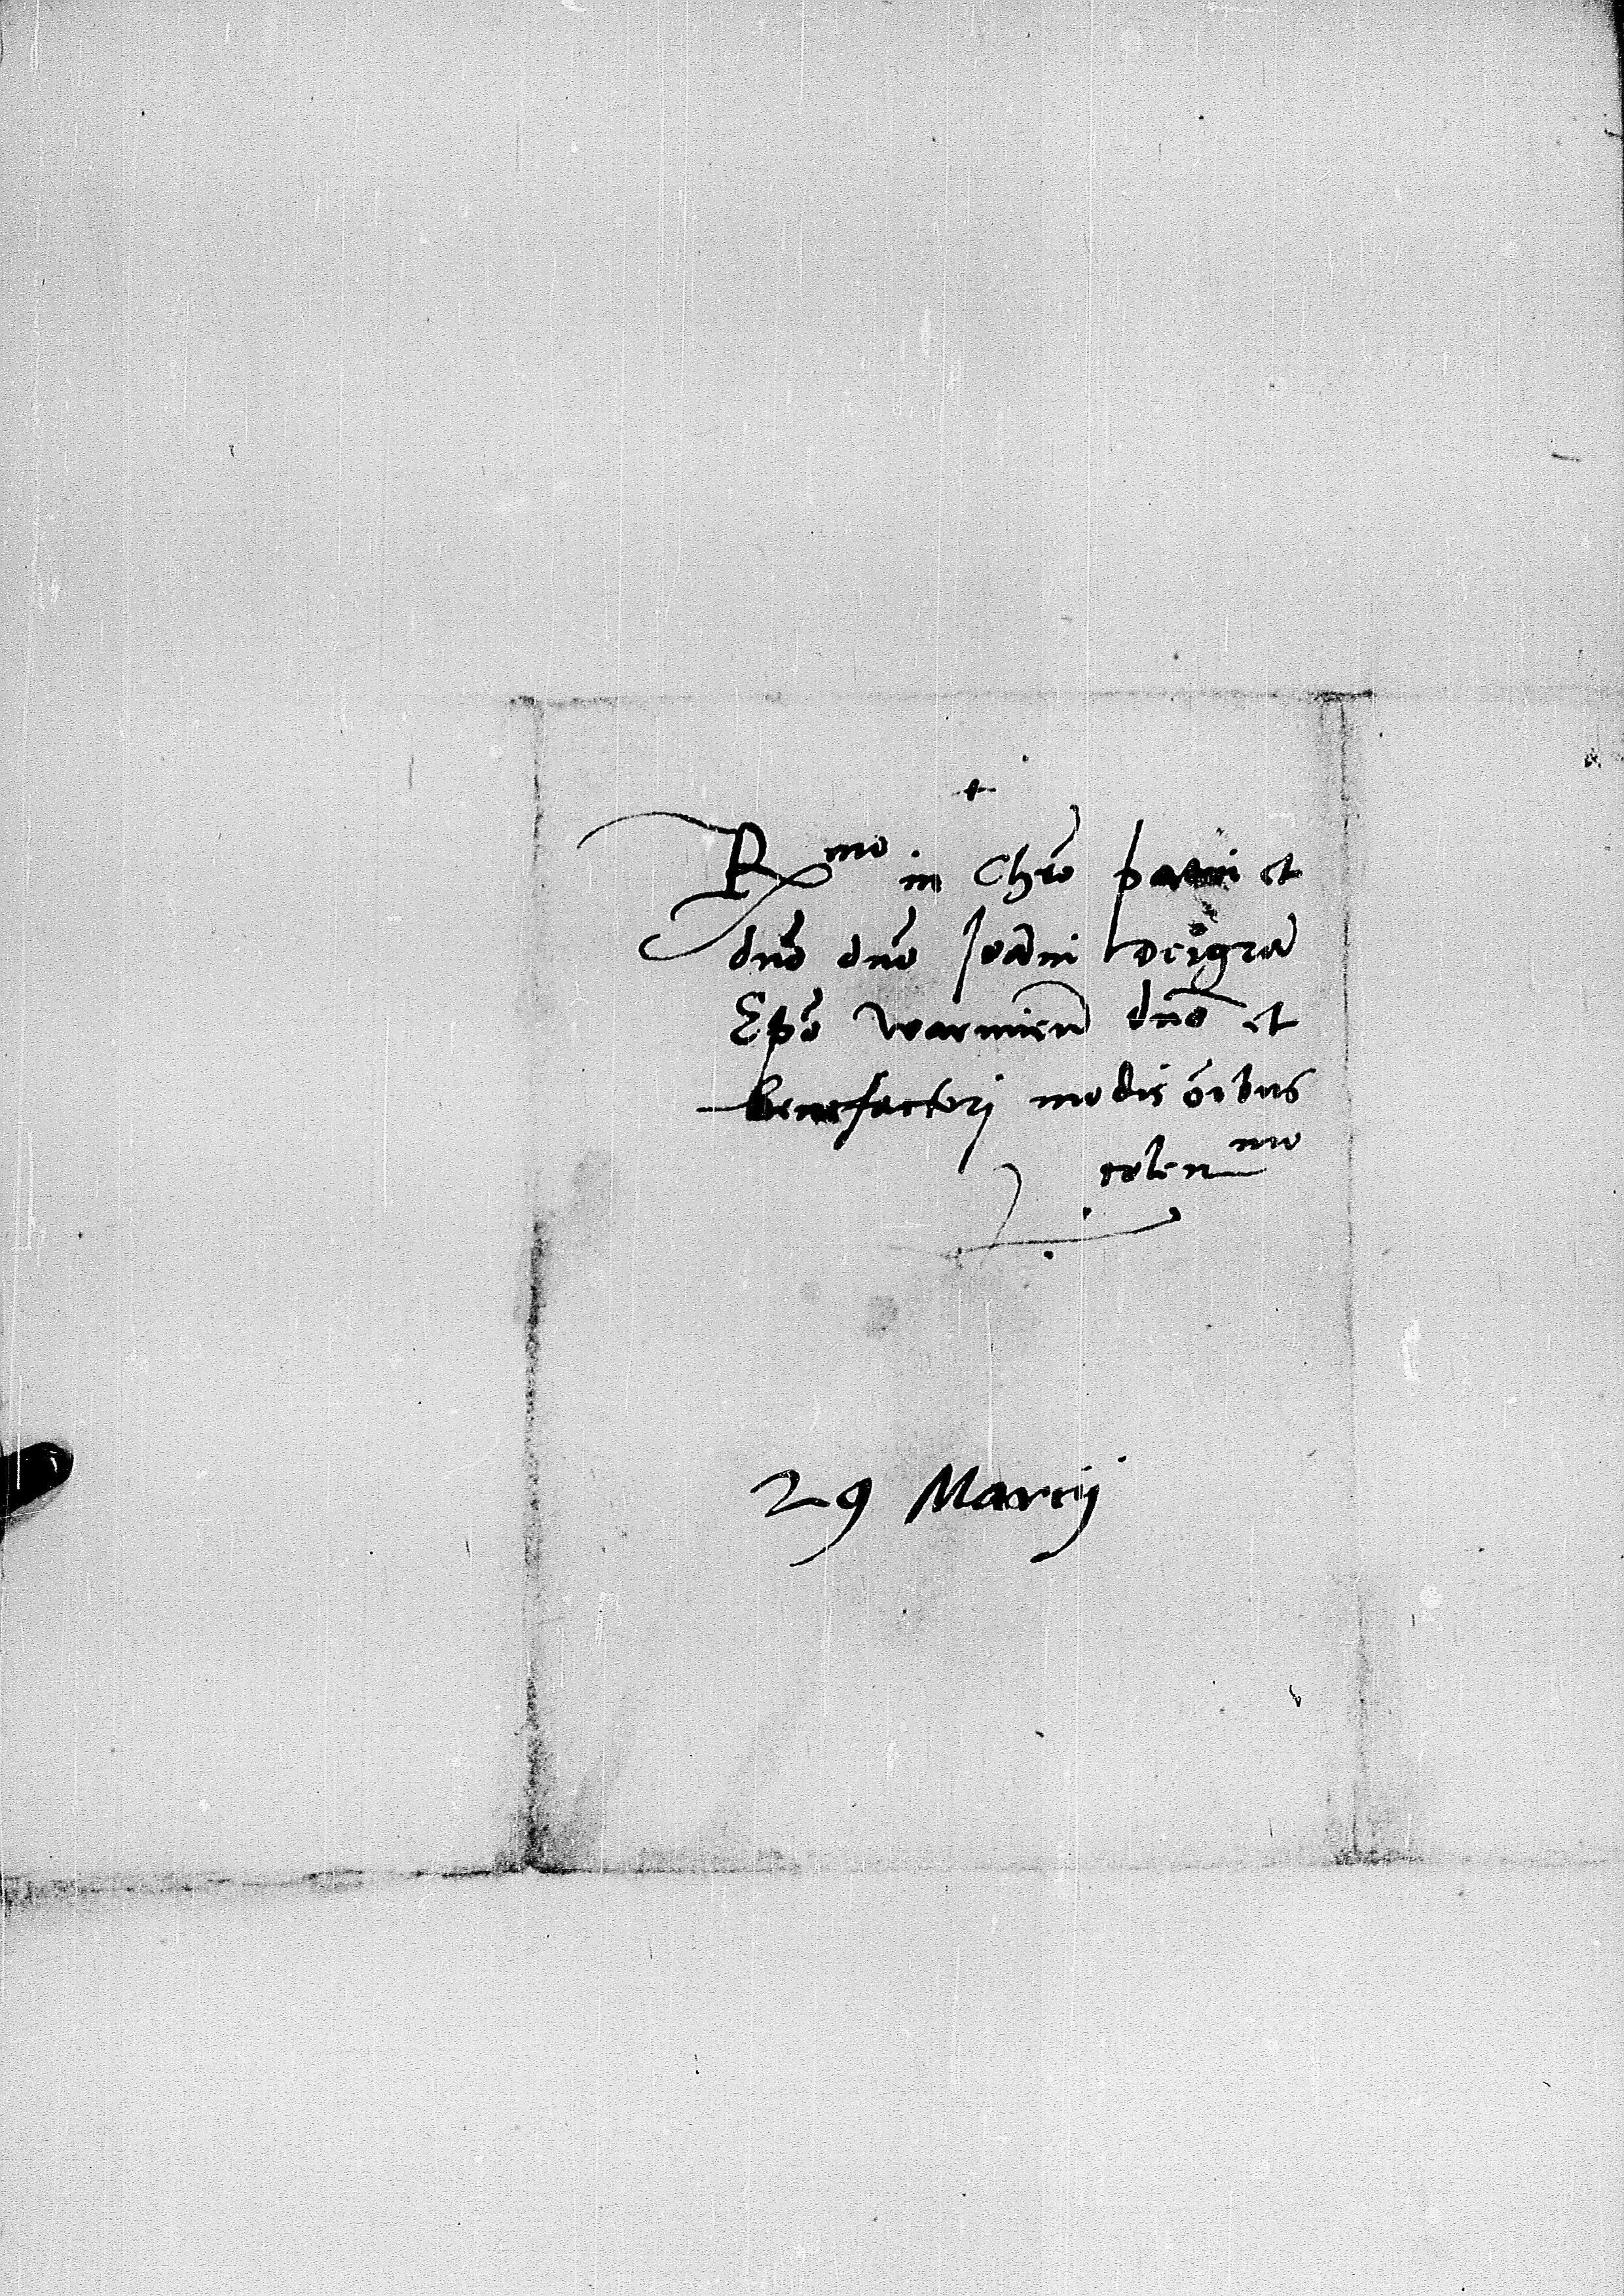 +
Rmo in Chro̅ patri et
dn̅o dn̅o Joan̅ni Dei gra̅
Ep̅o warmien̅ dn̅o et
benefactori modis o̅ibus
colenmo
29 Marcij